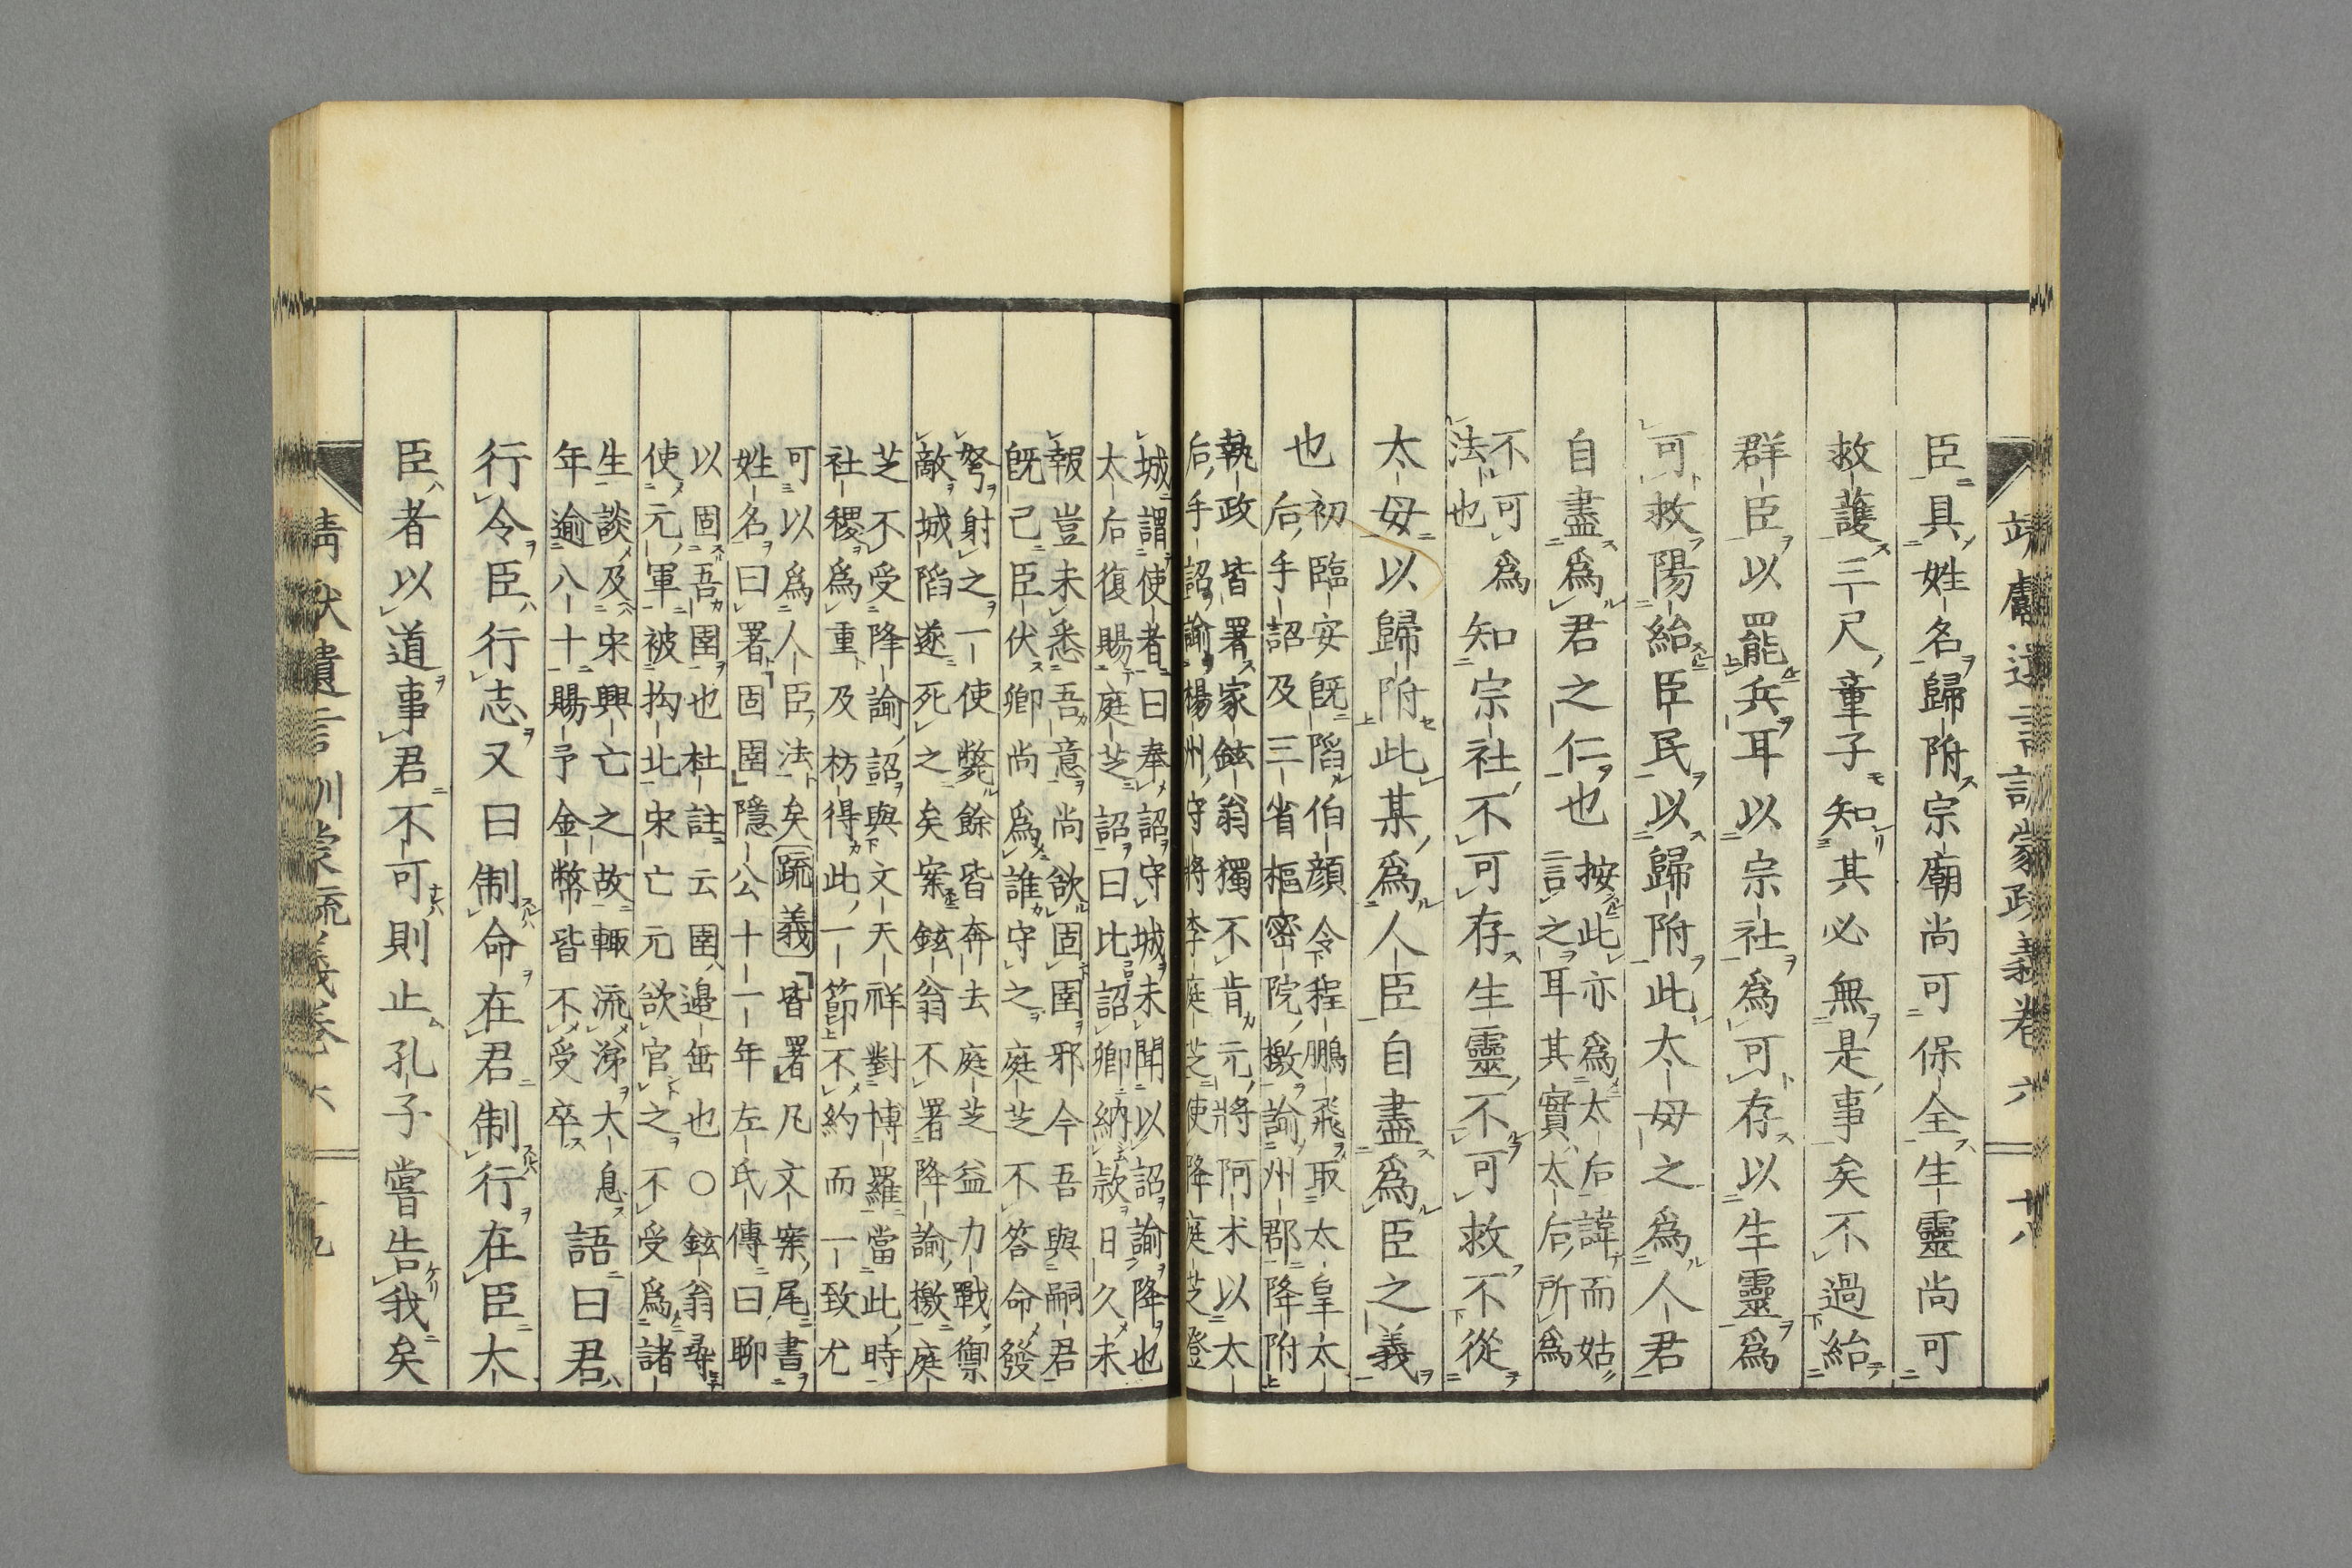 靖獻遺言訓蒙疏義卷六 廿八
臣具姓名歸附宗廟尚可保全生靈尚可
救護三尺童子知其必無是事矣不過紿
群臣以罷兵耳以宗社爲可存以生靈爲
可救陽紿臣民以歸附此太母之爲人君
自盡爲君之仁也
按此亦爲太后諱而姑
言之耳其實太后所爲
不可爲
法也
知宗社不可存生靈不可救不從
太母以歸附此某爲人臣自盡爲臣之義
也
初臨安既陷伯顔令程鵬飛取太皇太
后手詔及三省樞密院檄諭州郡降附
執政皆署家鉉翁獨不肯元將阿朮以太
后手詔諭楊州守將李庭芝使降庭芝登
城謂使者曰奉詔守城未聞以詔諭降也
太后復賜庭芝詔曰比詔卿納款日久未
報豈未悉吾意尚欲固圉邪今吾與嗣君
既已臣伏卿尚爲誰守之庭芝不答命發
弩射之一使斃餘皆奔去庭芝益力戰禦
敵城陷遂死之矣案鉉翁不署降諭檄庭
芝不受降諭詔與文天祥對博羅當此時
社稷爲重及枋得此一節不約而一致尤
可以爲人臣法矣疏義皆署凡文案尾書
姓名曰署固圉隱公十一年左氏傳曰聊
以固吾圉也杜註云圉邉垂也○鉉翁尋
使元軍被拘北宋亡元欲官之不受爲諸
生談及宋興亡之故輒流涕大息
年逾八十賜予金幣皆不受卒
語曰君
行令臣行志又曰制命在君制行在臣大
臣者以道事君不可則止孔子嘗告我矣